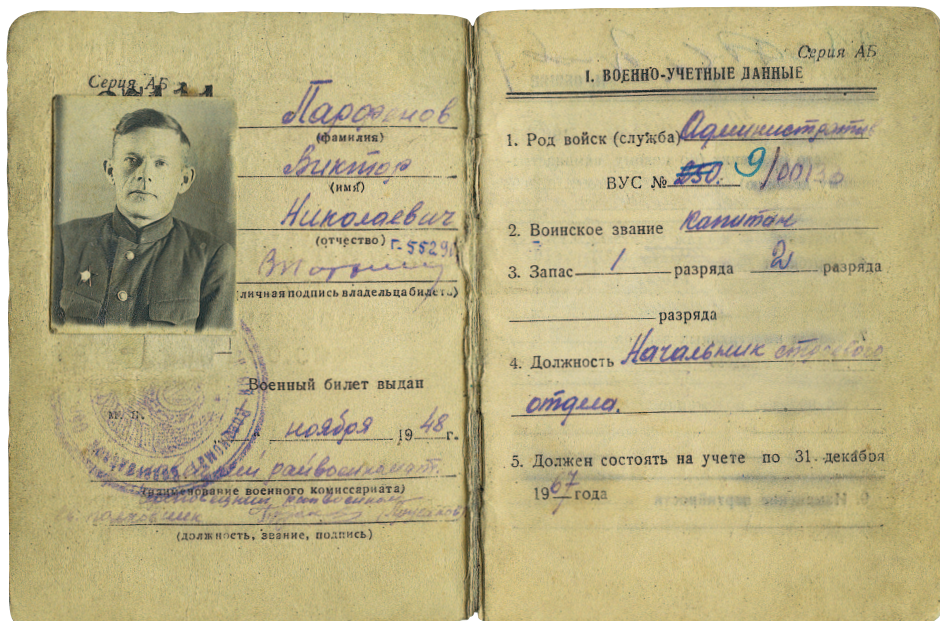 Серия АБ
Парфенов
(фамилия)
Виктор
(имя)
Николаевич
(отчество)
Г-5529
(личная подпись владельца билета)
Военный билет выдан
М. П.
ноября 1948 г.
райвоенкомат
(наименование военного комиссариата)
(должность, звание, подпись)
Серия АБ
I. ВОЕННО-УЧЕТНЫЕ ДАННЫЕ
1. Род войск (служба) Административ
ВУС № 250. 9/00130
2. Воинское звание капитан
3. Запас 1 разряда 2 разряда
разряда
4. Должность Начальник строевого
отдела.
5. Должен состоять на учете по 31 декабря
1967 года